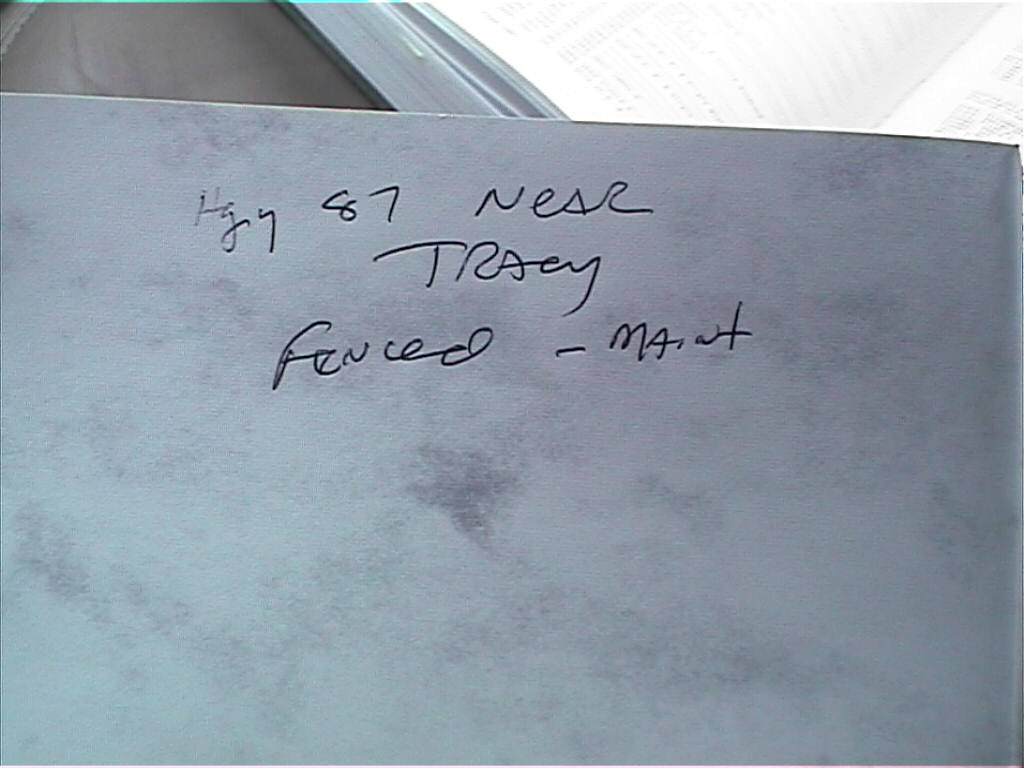 Hgy 87 Near
Tracy
Fenced - Maint